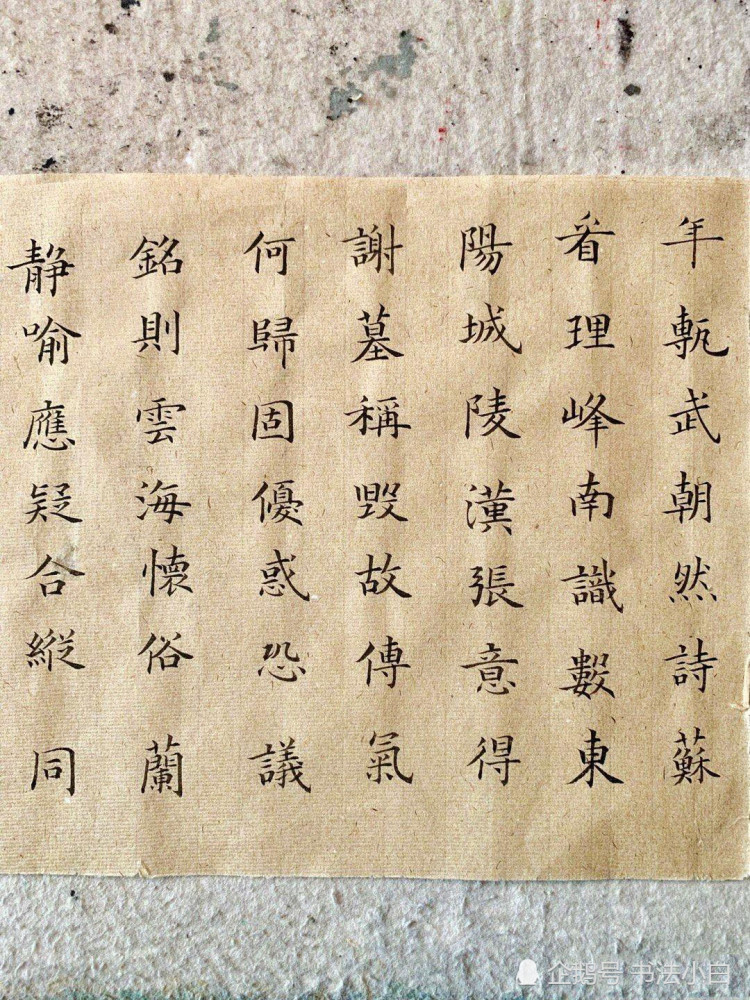 年軏武朝然詩蘇
看理峰南識數東
陽城陵漢張意得
謝墓稱毀故傳氣
何歸固優惑恐議
銘則雲海懷俗蘭
靜喻應疑合縱同
企鹅号 书法小白